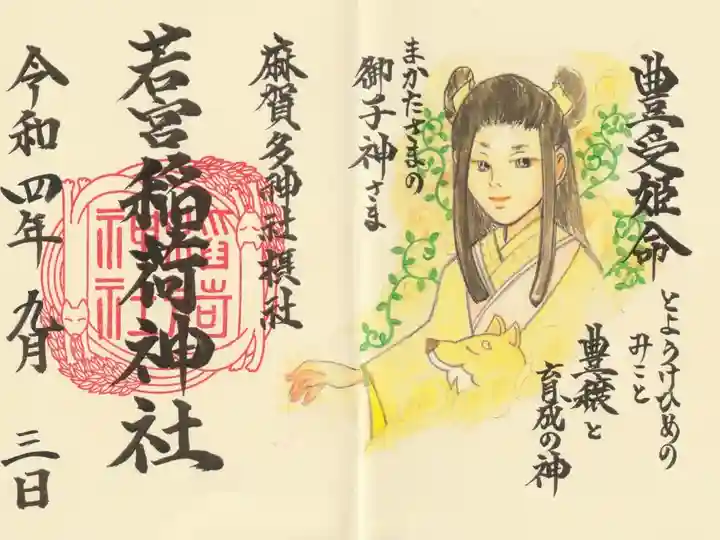 豊受姫命
とようけひめの
みこと
豊穣と
育成の神
まかたさまの
御子神さま
麻賀多神社摂社
若宮稲荷神社
稲荷
神社
令和四年九月三日